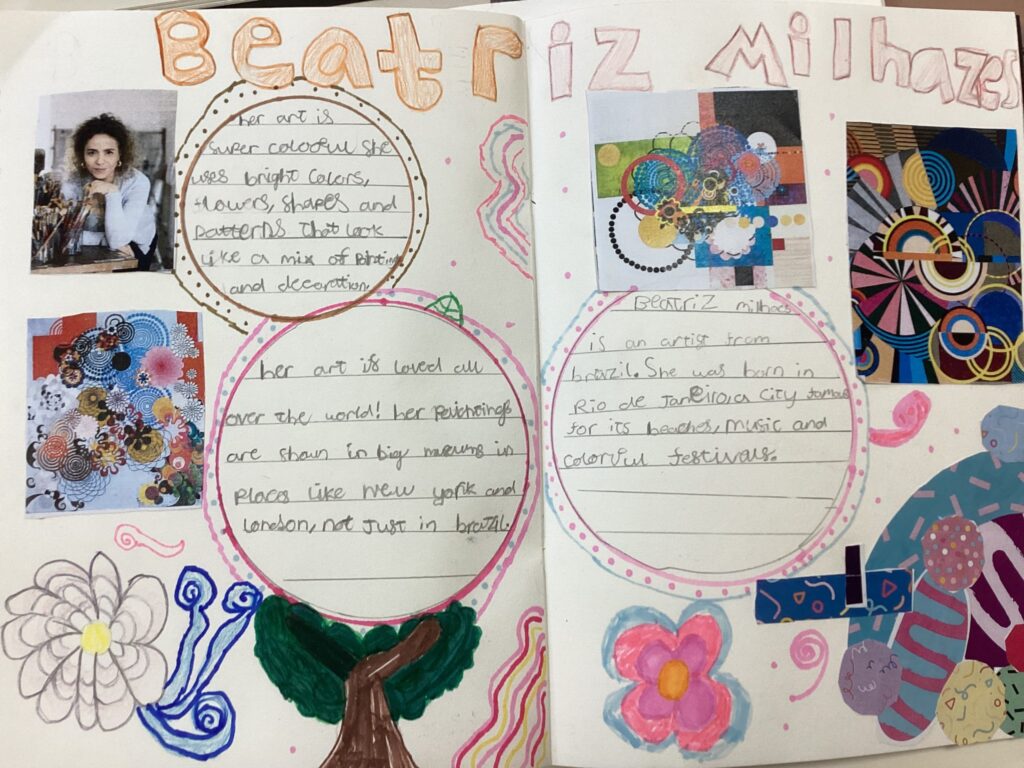 Beatriz Milhazes
her art is
super coloful she
uses bright colors,
flowers, shapes and
patterns that look
like a mix of
and decoration.
her art is loved all
over the world! her
are shown in big museums in
places like new york and
london, not just in brazil.
Beatriz milhaes
is an artist from
brazil. She was born in
Rio de Janeiro, a city famous
for its beaches, music and
colorful festivals.